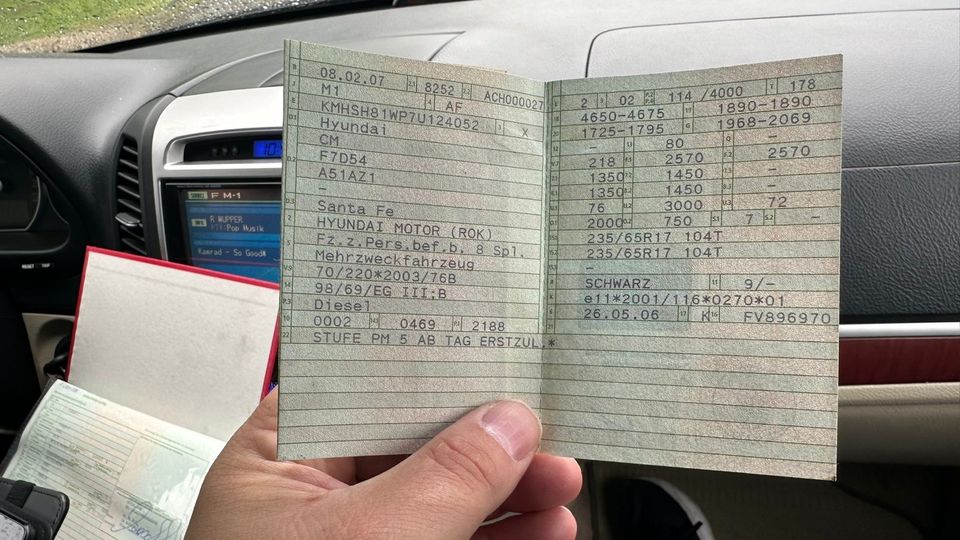 08.02.07 8252 ACH000027
M1 AF
KMHSH81WP7U124052 X
Hyundai
CM
F7D54
A51AZ1
–
Santa Fe
HYUNDAI MOTOR (ROK)
Fz.z.Pers.bef.b. 8 Spl.
Mehrzweckfahrzeug
70/220*2003/76B
98/69/EG III;B
Diesel
0002 0469 2188
STUFE PM 5 AB TAG ERSTZUL.*
2 02 114 /4000 178
4650-4675 1890-1890
1725-1795 1968-2069
– 80 –
218 2570 2570
1350 1450 –
1350 1450 –
76 3000 72
2000 750 7 –
235/65R17 104T
235/65R17 104T
–
SCHWARZ 9/–
e11*2001/116*0270*01
26.05.06 K FV896970
FM-1
R WUPPER
PTY:Pop Musik
Kamrad - So Good